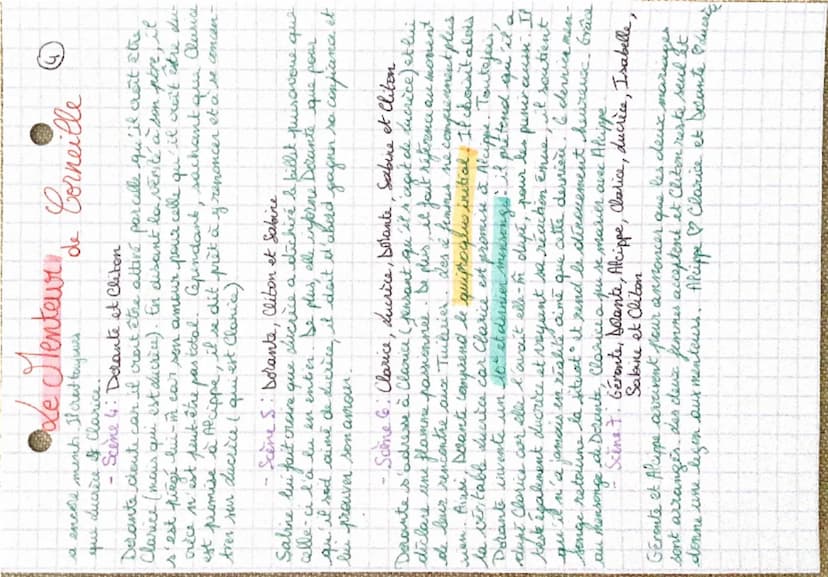 Le Menteur
de Corneille
4
a encore menti. Il croit toujours
que Lucrèce est Clarice.
- Scène 4 : Dorante et Cliton
Dorante ment car il croit être attiré parcelle qu'il croit être
Clarice (mais qui est Lucrèce). En disant la vérité à son père, il
s'est piégé lui-m̂ car son amour pour celle qu'il croit être Lu-
crèce n'est peut-être pas total. Cependant, sachant que Clarice
est promise à Alcippe, il se dit prêt à y renoncer et à se concen-
trer sur Lucrèce (qui est Clarice)
- Scène 5 : Dorante, Cliton et Sabine
Sabine lui fait croire que Lucrèce a déchiré le billet puis avoue que
celle-ci l'a lu en entier. De plus, elle informe Dorante que pour
qu'il soit aimé de Lucrèce, il doit d'abord gagner sa confiance et
lui prouver son amour.
- Scène 6 : Clarice, Lucrèce, Dorante, Sabine et Cliton
Dorante s'adresse à Clarice (pensant qu'il s'agit de Lucrèce) et lui
déclare une flamme passionnée. De plus, il fait référence au moment
de leur rencontre aux Tuileries. Les 2 femmes ne comprennent plus
rien. Ainsi, Dorante comprend le quiproquo initial. Il choisit alors
la véritable Lucrèce car Clarice est promise à Alcippe. Toutefois,
Dorante invente un 10e et dernier mensonge : il prétend qu'il a
dupé Clarice car elle l'avait elle-m̂ dupé, pour les punir aussi. Il
était également discret et voyant sa réaction émue, il soutient
qu'il n'a jamais en réalité aimé que cette dernière. Ce dernier men-
songe retourne la situat° et rend le dénouement heureux. Grâce
au mensonge de Dorante, Clarice a pu se marier avec Alcippe
- Scène 7 : Géronte, Dorante, Alcippe, Clarice, Lucrèce, Isabelle,
Sabine et Cliton
Géronte et Alcippe arrivent pour annoncer que les deux mariages
sont arrangés. Les deux femmes acceptent et Cliton reste seul et
donne une leçon aux menteurs. Alcippe ♡ Clarice et Dorante ♡ Lucrèce